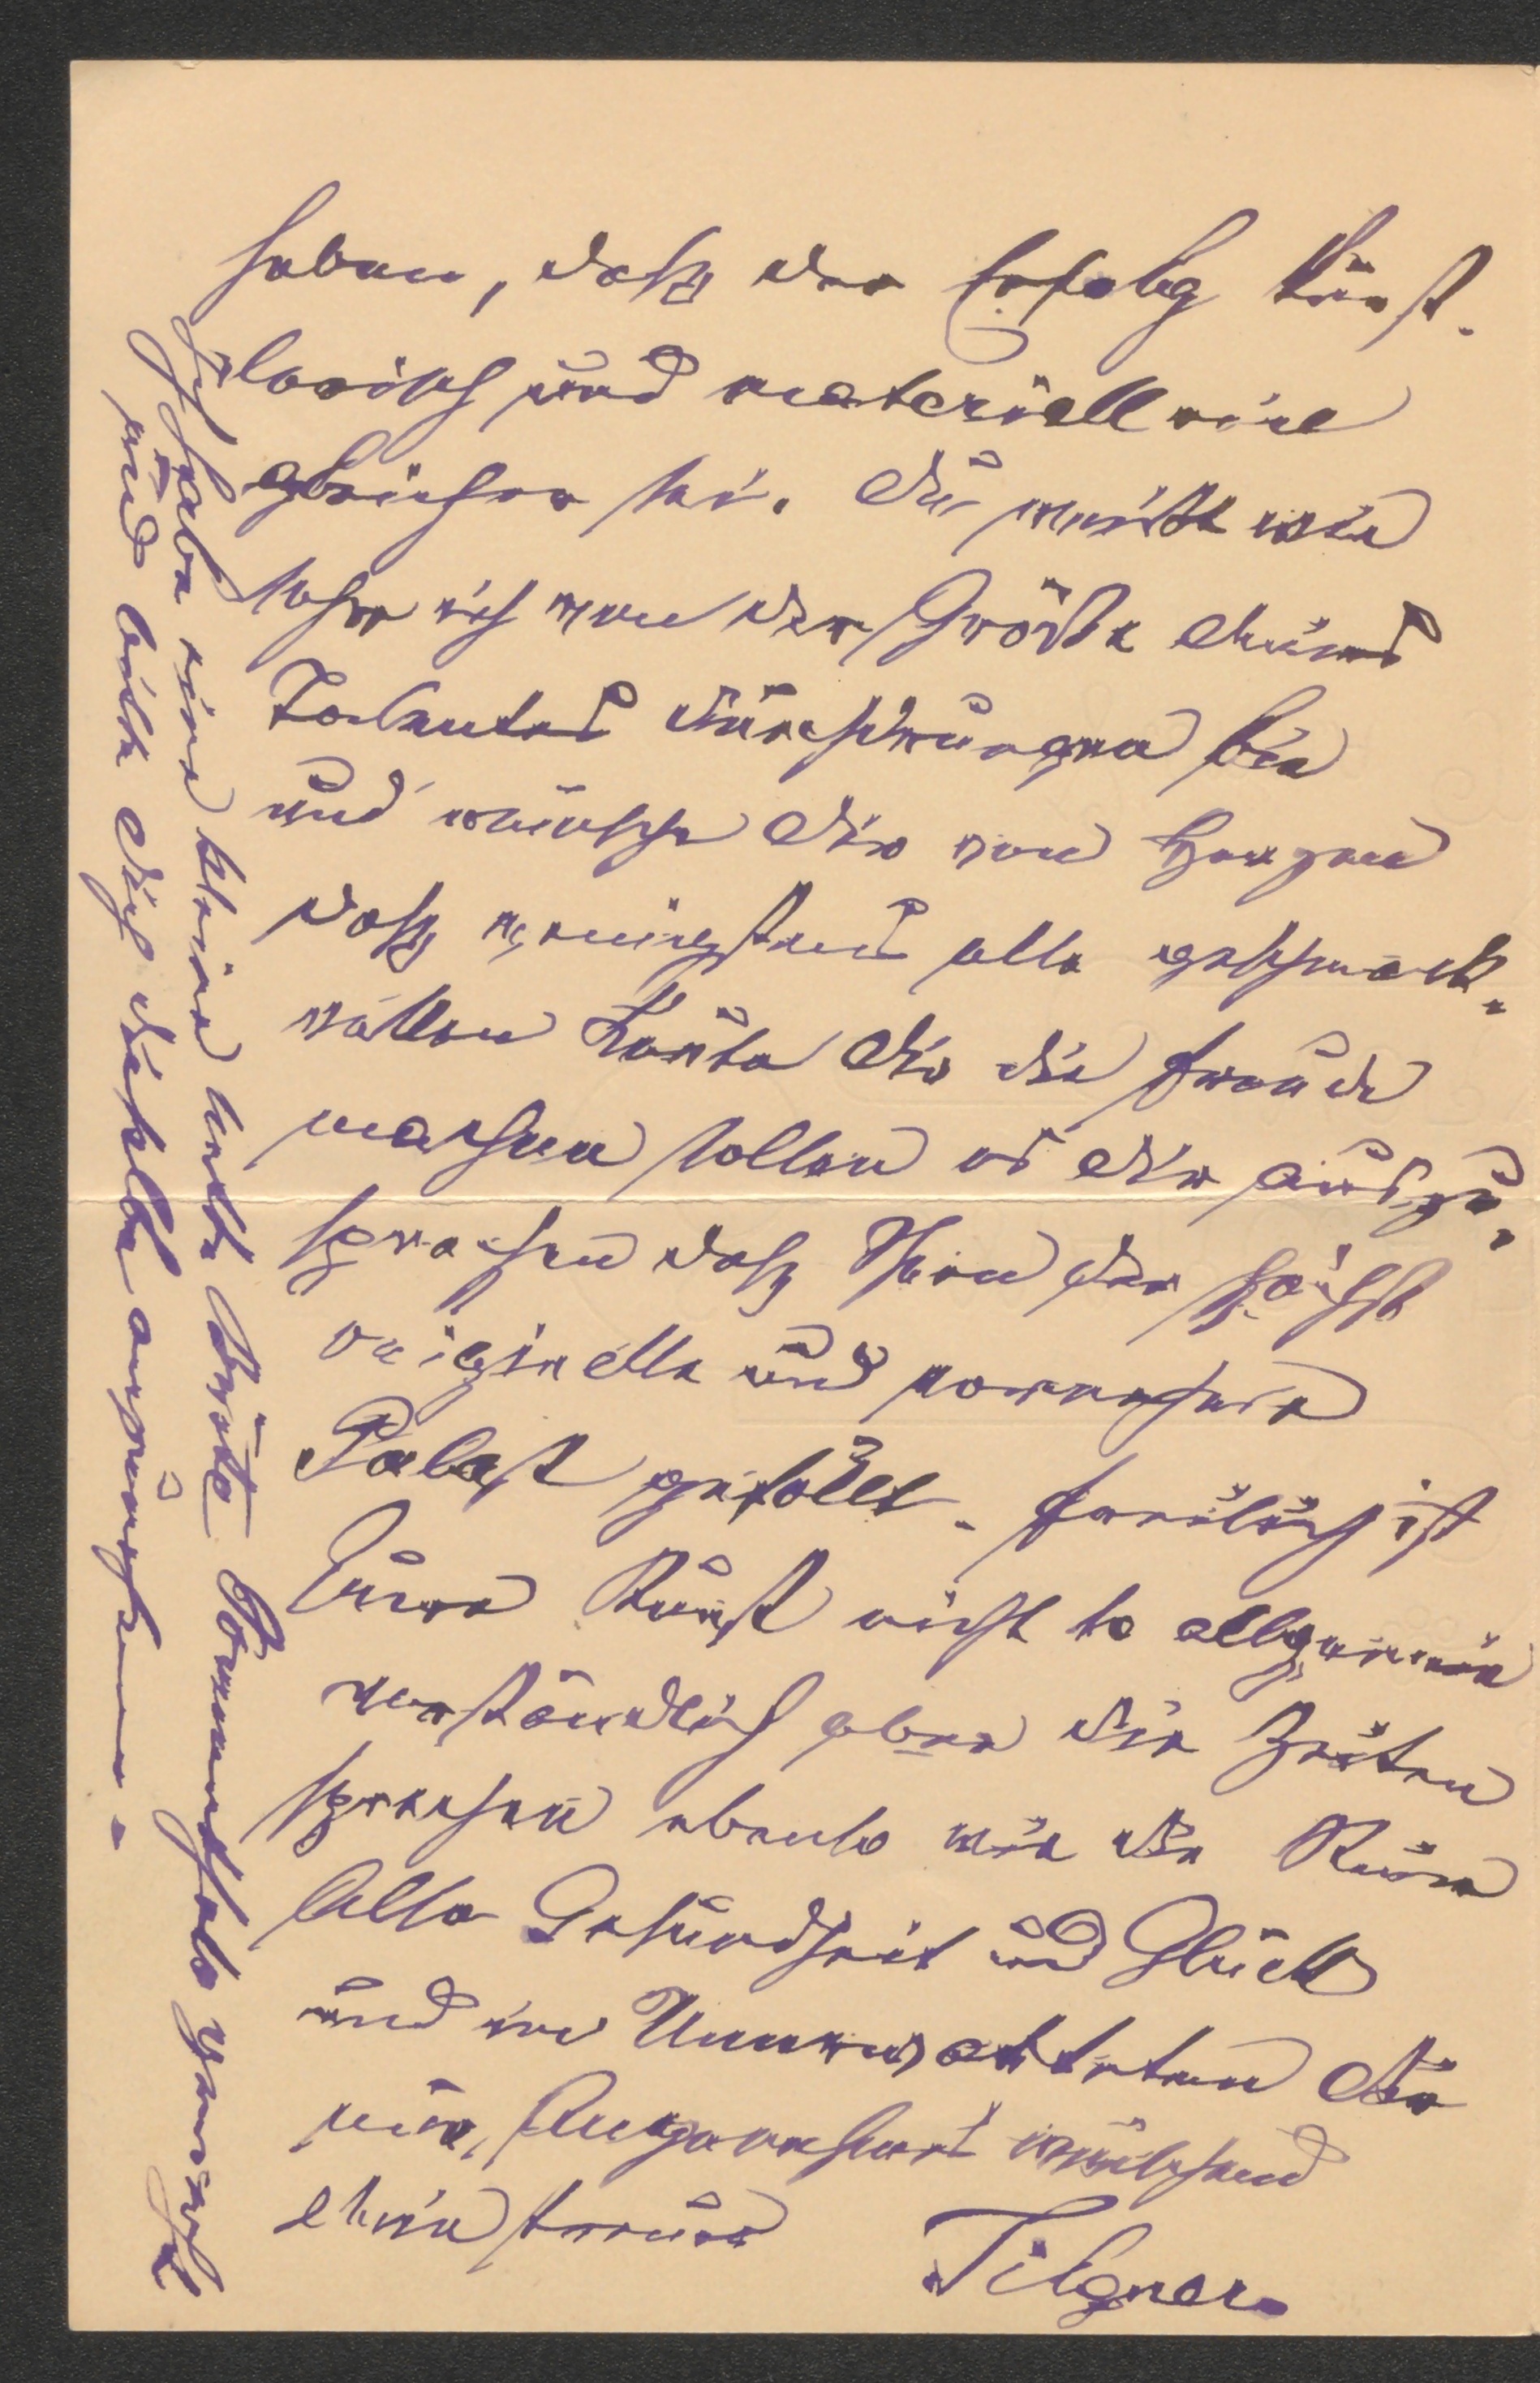 haben, daß der Erfolg künst-
lerisch und materiell ein
gleicher sei. Du weißt wie
sehr ich von der Größe Deines
Talentes durchdrungen bin
und wünsche Dir von Herzen
daß wenigstens alle geschmack-
vollen Leute Dir die Freude
machen sollen es Dir auszu-
sprechen daß Ihnen der höchst
originelle und vornehme
Palast gefällt. Freilich ist
Eure Kunst nicht so allgemein
verständlich aber die Zeiten
sprechen ebenso wie die
Alles Gesundheit und Glück
und im Unerwarteten Dir
nur Angenehmes wünschend
Dein treuer Tilgner
Ich habe eine kleine Büste gemacht
und bitte Dich dieselbe anzunehmen.